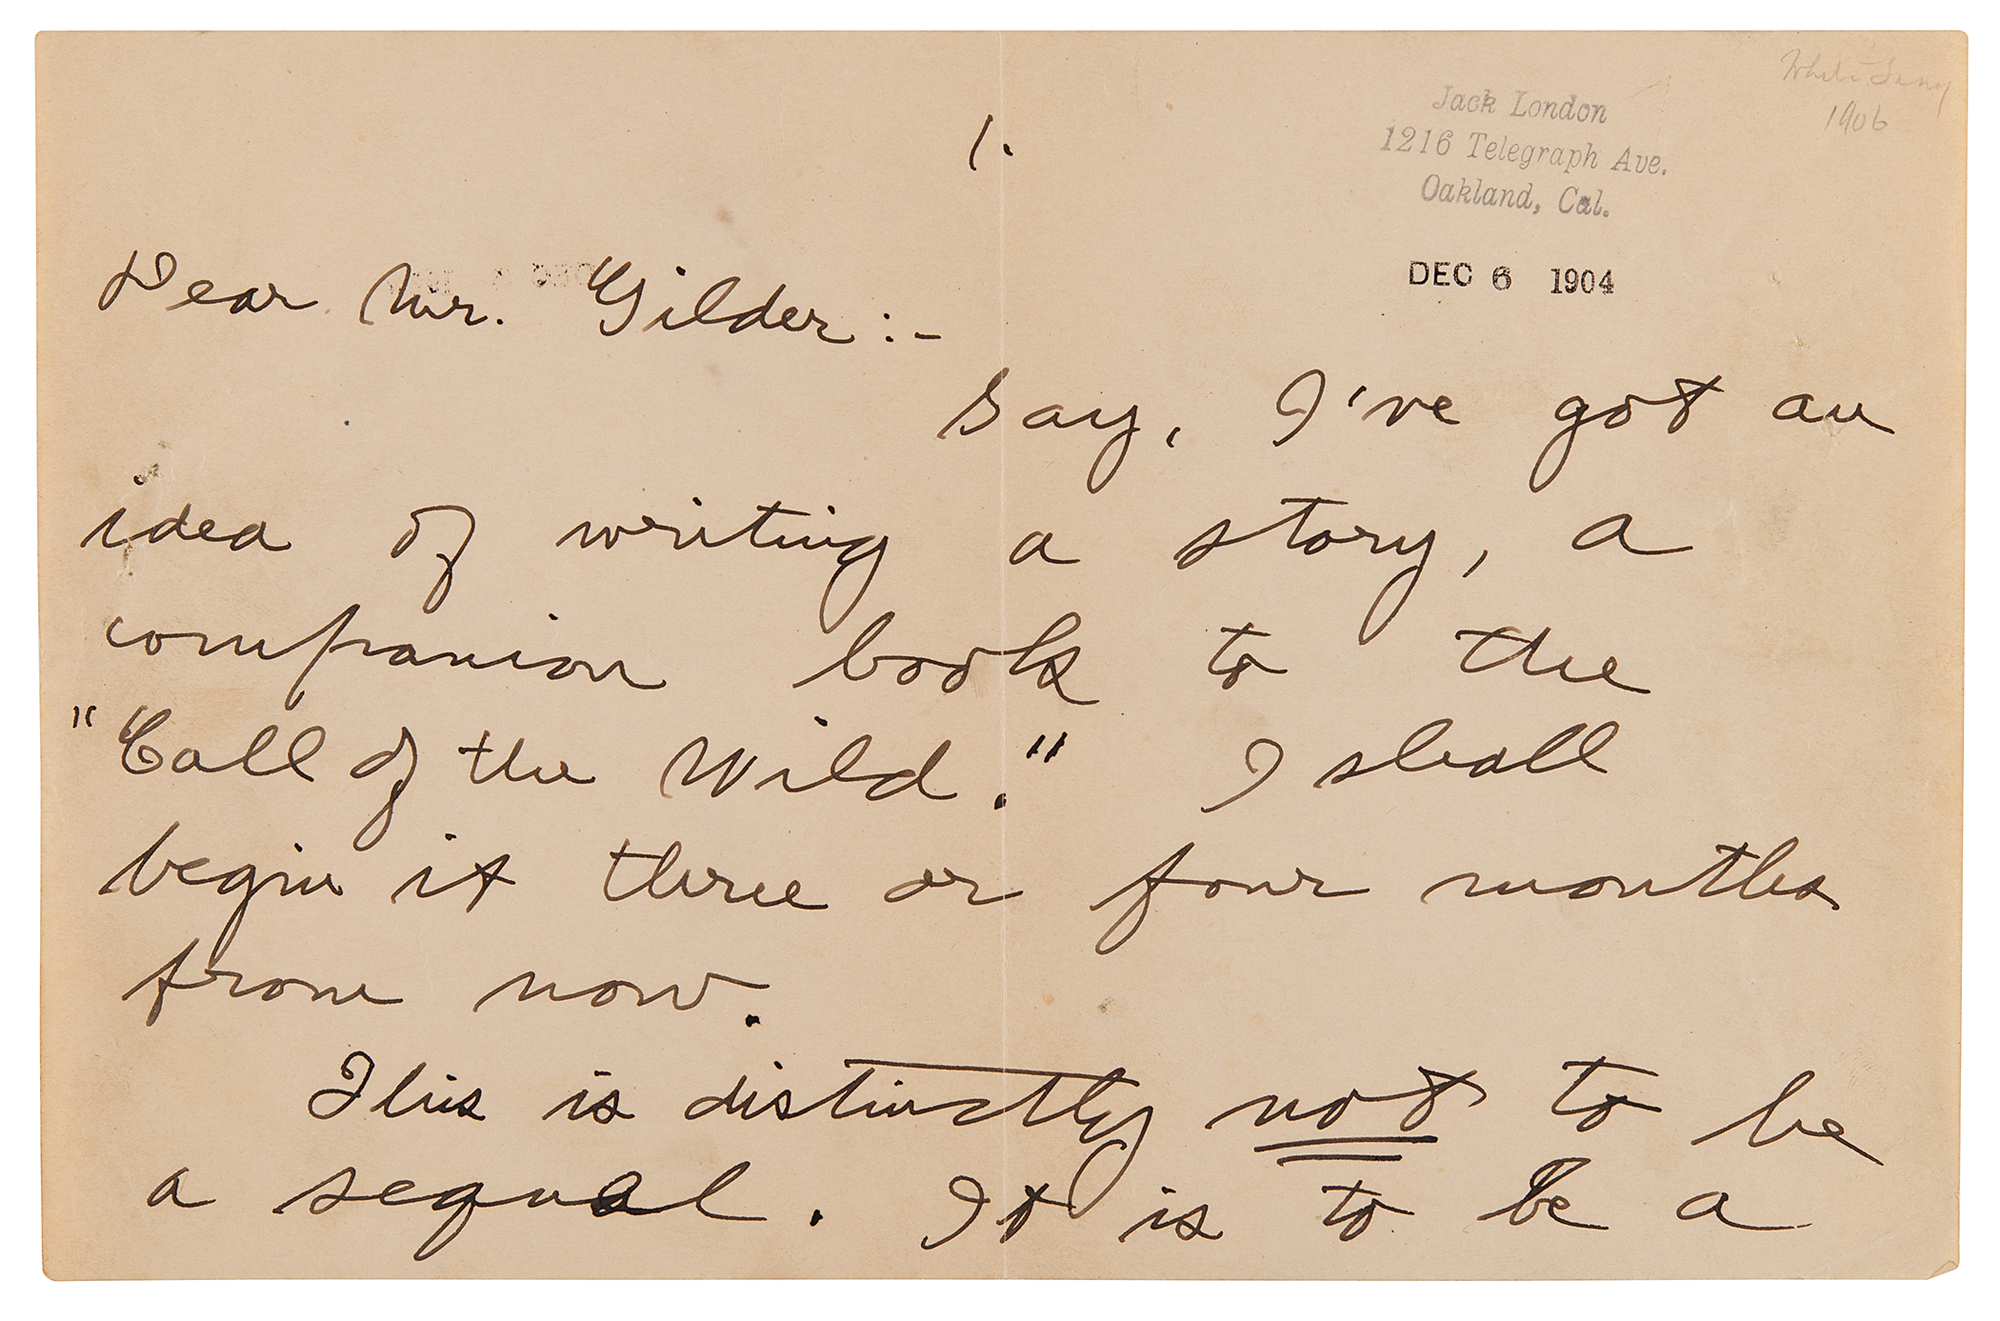 White Fang
1906
Jack London
1216 Telegraph Ave.
Oakland, Cal.
1.
DEC 6 1904
Dear Mr. Gilder:-
Say, I've got an
idea of writing a story, a
companion book to the
"Call of the Wild." I shall
begin it three or four months
from now.
This is distinctly not to be
a sequal. It is to be a